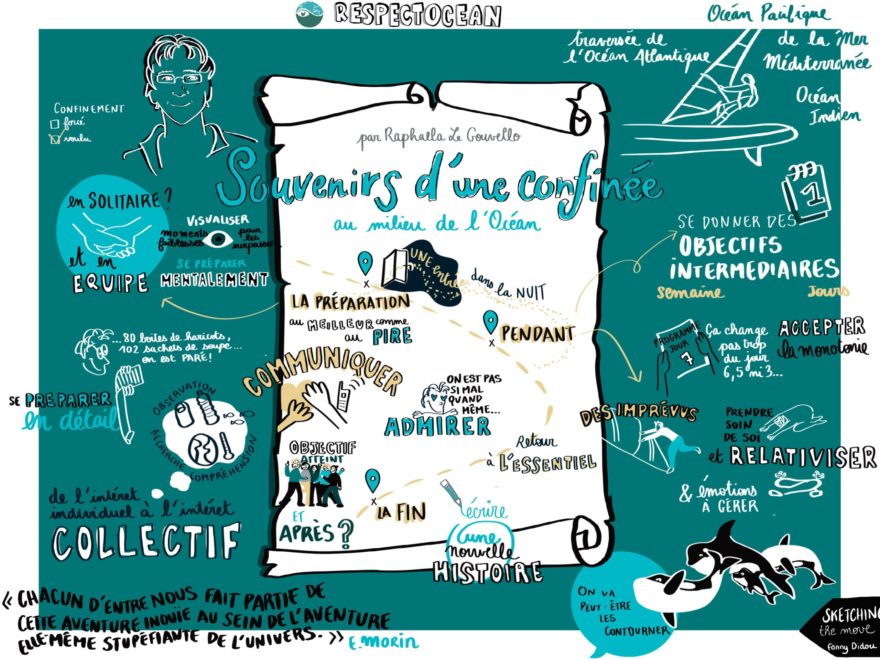 RESPECTOCEAN
Océan Pacifique
traversée de
l'Océan Atlantique
de la Mer
Méditerranée
Océan
Indien
CONFINEMENT
forcé
voulu
par Raphaëlla Le Gouvello
Souvenirs d'une confinée
au milieu de l'Océan
en SOLITAIRE ?
et en
EQUIPE
VISUALISER
moments
faiblesses
pour
les
surpasser
SE PRÉPARER
MENTALEMENT
...80 boîtes de haricots,
102 sachets de soupe...
on est PARÉ!
SE PREPARER
en détail
OBSERVATION
RECHERCHE
COMPRÉHENSION
de l'intéret
individuel à l'intéret
COLLECTIF
UNE entrée
dans la NUIT
LA PRÉPARATION
au MEILLEUR comme
au PIRE
PENDANT
COMMUNIQUER
ON EST PAS
SI MAL
QUAND
MÊME...
ADMIRER
Retour
à L'ESSENTIEL
OBJECTIF
ATTEINT
ET
APRÈS ?
LA FIN
écrire
une
nouvelle
HISTOIRE
1
SE DONNER DES
OBJECTIFS
INTERMEDIAIRES
Semaine
Jours
PROGRAMME
JOUR
7
Ça change
pas trop
du jour
6, 5 ni 3...
ACCEPTER
la monotonie
DES IMPRÉVUS
PRENDRE
SOIN
DE SOI
et RELATIVISER
& émotions
À GÉRER
ON VA
PEUT-ÊTRE
LES
CONTOURNER
« CHACUN D'ENTRE NOUS FAIT PARTIE DE
CETTE AVENTURE INOUÏE AU SEIN DE L'AVENTURE
ELLE-MÊME STUPÉFIANTE DE L'UNIVERS. » E. MORIN
SKETCHING
the move
Fanny Didou